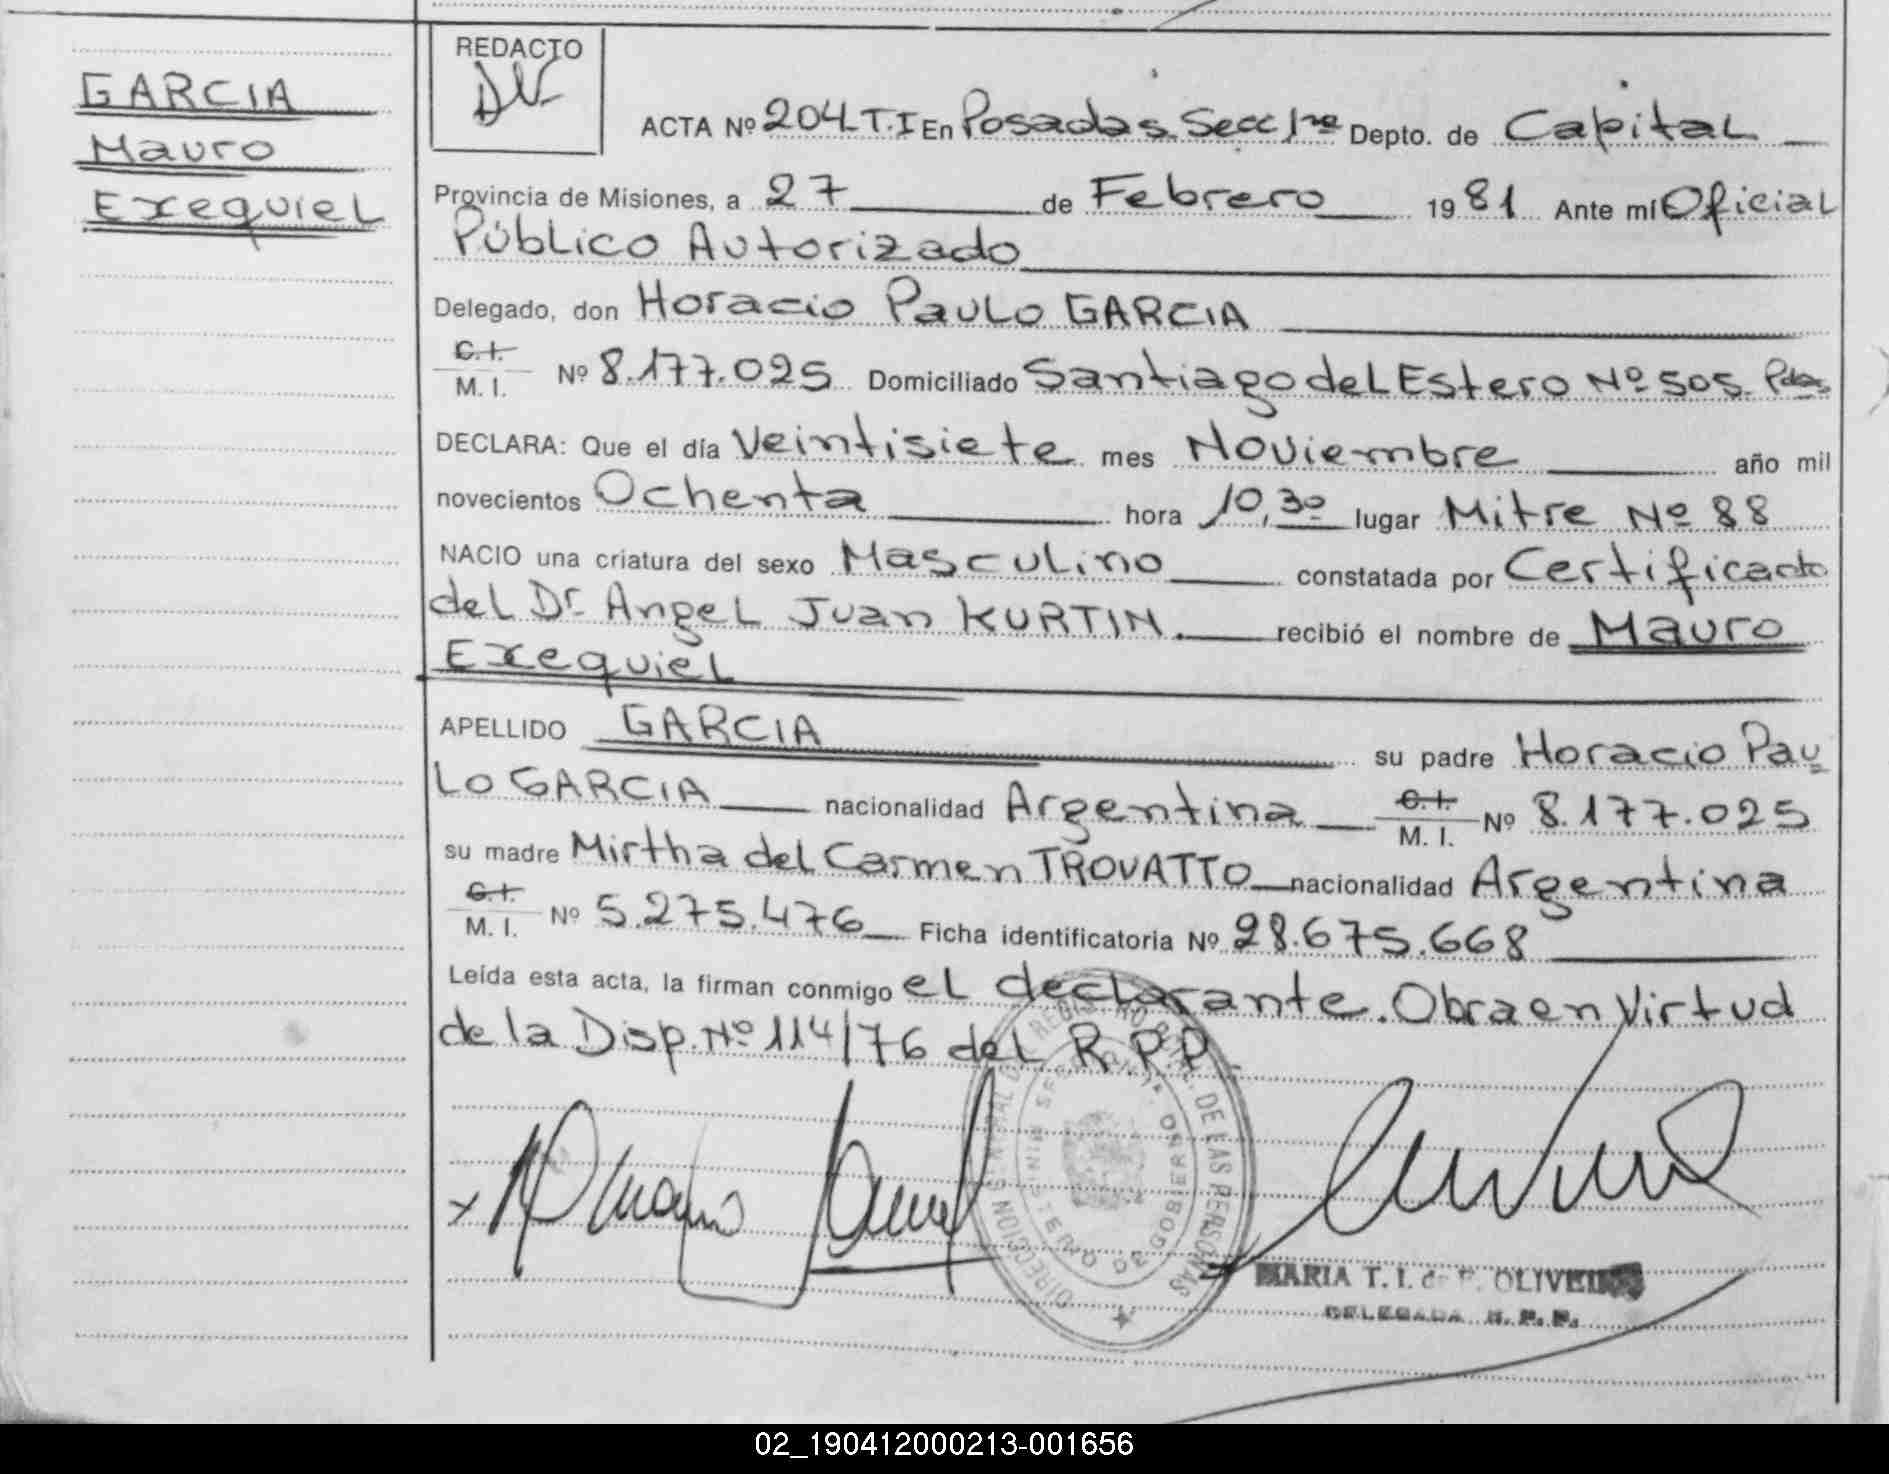 GARCIA
Mauro
Exequiel
REDACTO
ACTA Nº 204 T.I En Posadas Secc 1ra Depto. de Capital
Provincia de Misiones, a 27 de Febrero 1981 Ante mí Oficial
Público Autorizado
Delegado, don Horacio Paulo GARCIA
C.I.
M. I. Nº 8.177.025 Domiciliado Santiago del Estero Nº 505. Pdas
DECLARA: Que el día Veintisiete mes Noviembre año mil
novecientos Ochenta hora 10,30 lugar Mitre Nº 88
NACIO una criatura del sexo Masculino constatada por Certificado
del Dr. Angel Juan KURTIN. recibió el nombre de Mauro
Exequiel
APELLIDO GARCIA su padre Horacio Pau
Lo GARCIA nacionalidad Argentina C.I.
M. I. Nº 8.177.025
su madre Mirtha del Carmen TROVATTO nacionalidad Argentina
C.I.
M. I. Nº 5.275.476 Ficha identificatoria Nº 28.675.668
Leída esta acta, la firman conmigo el declarante. Obra en Virtud
de la Disp. Nº 114/76 del R.P.P.
DIRECCION GRAL. DEL REGISTRO PCIAL. DE LAS PERSONAS
MINISTERIO DE GOBIERNO
MARIA T. I. de OLIVEIRA
DELEGADA R. P. P.
02_190412000213-001656